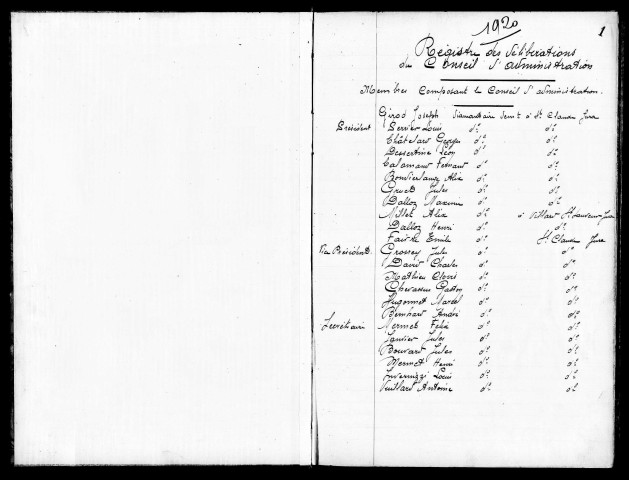 1920
1
Registre des délibérations
du Conseil d'administration
Membres Composant le Conseil d'administration.
Girod Joseph diamantaire demt à St Claude Jura
Président Perrier Louis do do
Châtelard Georges do do
Dessertine Léon do do
Calamand Fernand do do
Alix do do
Jules do do
Dalloz Maxime do do
Millet Alix do à Villard St Sauveur Jura
Dalloz Henri do do
Faivre Emile do St Claude Jura
Vice Président Grossey Jules do do
David Charles do do
Mathieu Clovis do do
Chevassus Gaston do do
Hugonnet Marcel do do
Bernhard André do do
Secrétaire Mermet Félix do do
Janvier Jules do do
Bouvard Jules do do
Mermet Henri do do
Invernizzi Louis do do
Vuillard Antoine do do